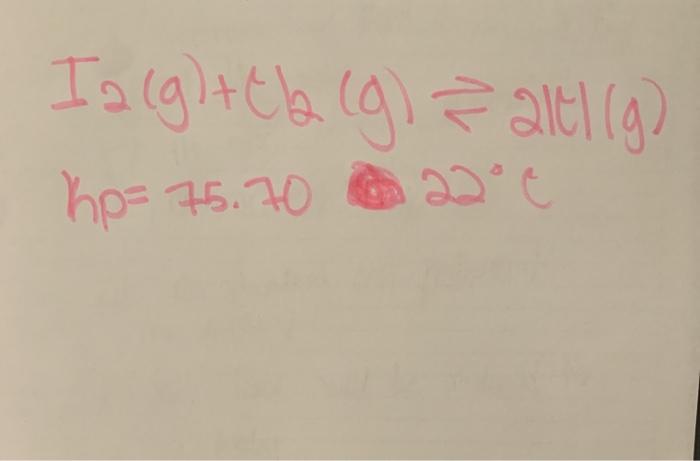 I2(g)+Cl2(g) ⇌ 2ICl(g)
Kp= 75.70 22°C